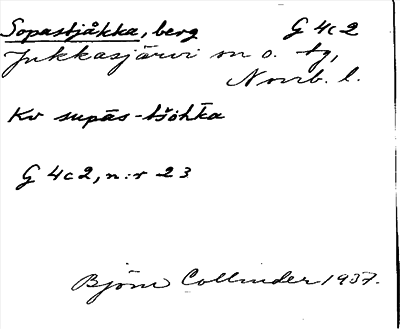 Sopastjåkka, berg G 4c2
Jukkasjärvi sn o. tg,
Norrb. l.
Kv supās-tšŏhka
G 4c2, n:r 23
Björn Collinder 1937.